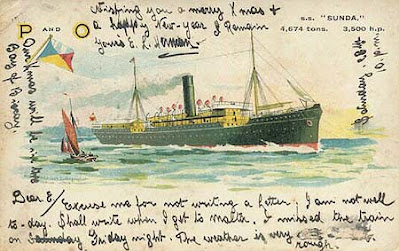 P AND O
S.S. "SUNDA."
4,674 tons. 3,500 h.p.
Wishing you a merry Xmas &
a happy New-year I Remain
Yours E. L.
Our Xmas will be in the
Bay of
Dear E/ Excuse me for not writing a letter, I am not well
to-day. Shall write when I get to Malta. I missed the train
on Friday night. The weather is very
rough